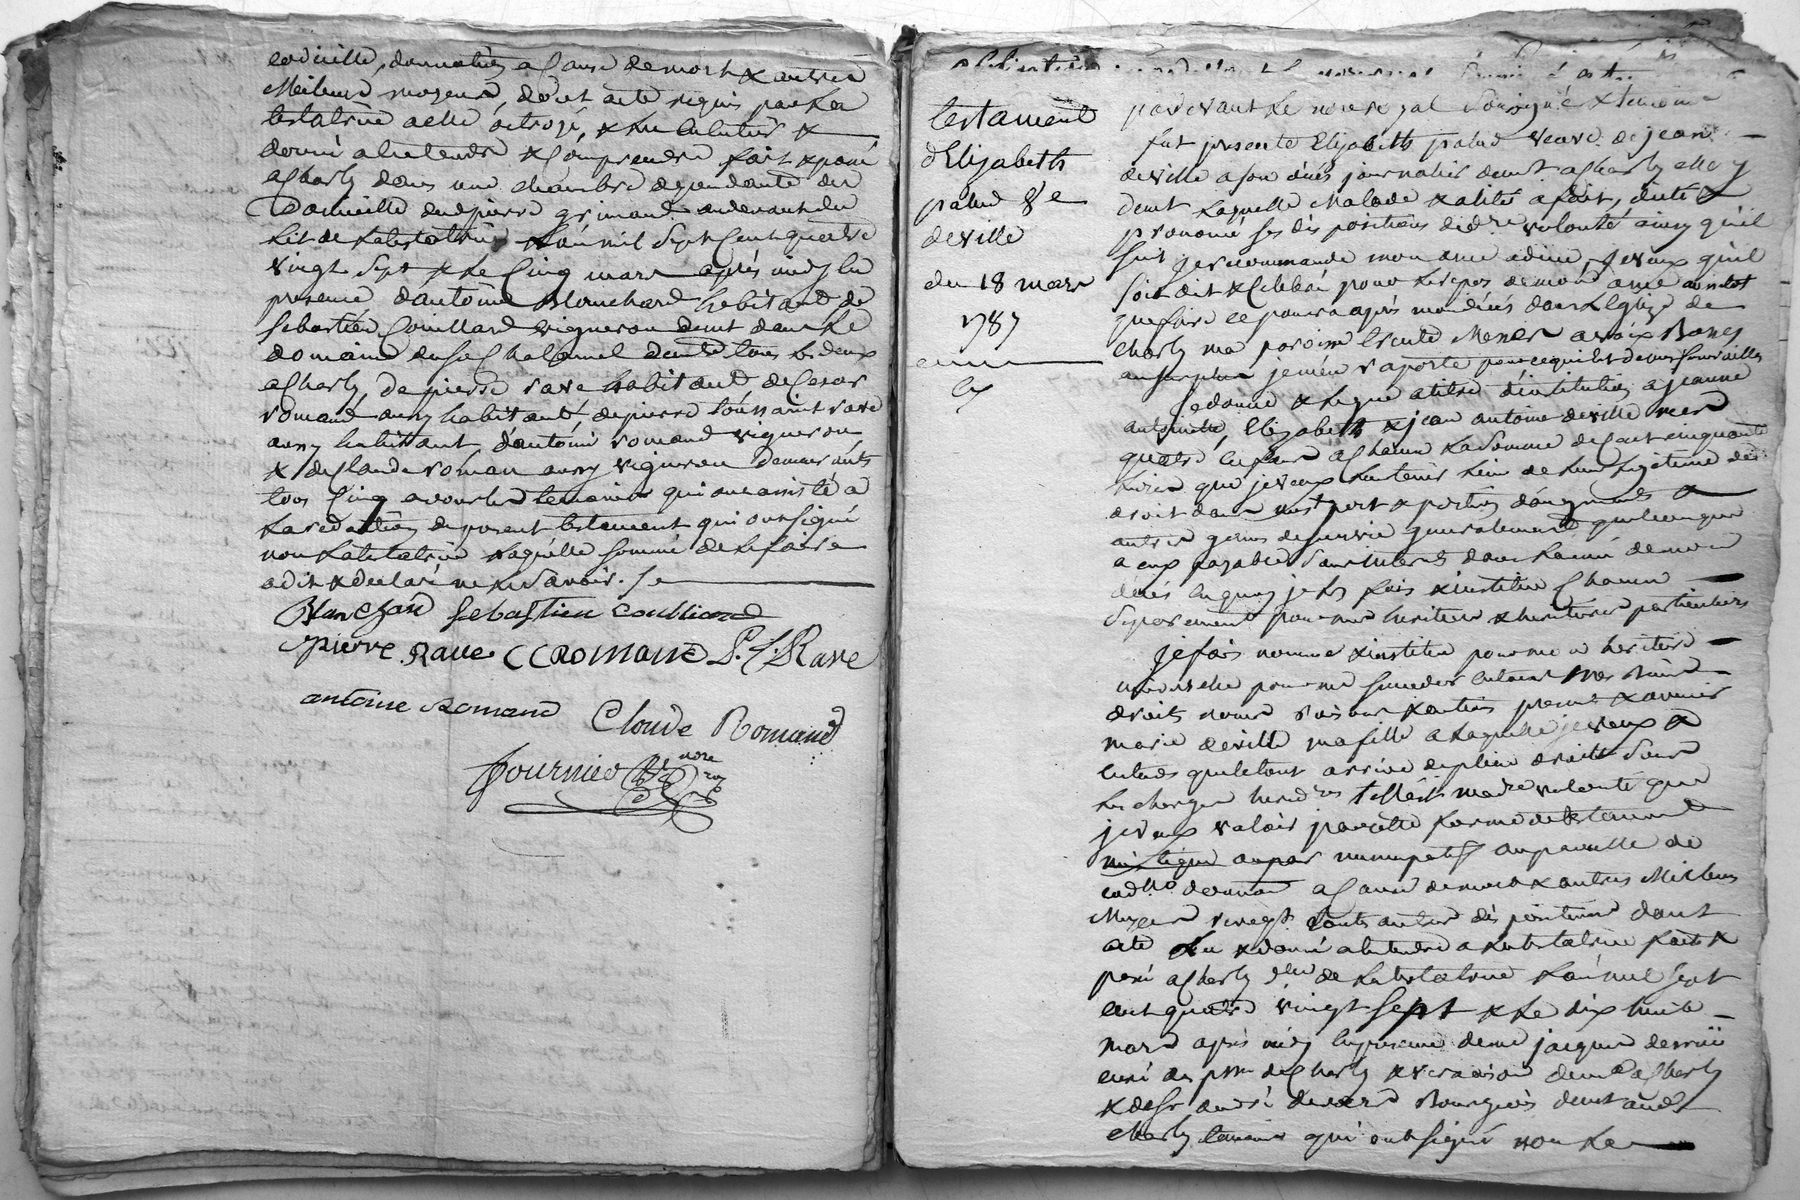 codicille, donnation a Cause de mort & autres
Meilleurs moyens, dont acte requis par la
testatrice a elle octroyé, & lu
donné a entendre & Comprendre fait & passé
a Charly dans une chambre dependante du
Domicille dud pierre grimaud audevant du
Lit de la testatrice L'an mil Sept Cent quatre
vingt Sept & Le Cinq mars après midy En
presence d'antoine Blanchard habitant de
Sebastien Couillard vigneron demt dans le
domaine du Sr demt tous les deux
a Charly, de pierre rave habitant de Cesar
romand aussy habitant, de pierre toussaint rave
aussy habitant d'antoine romand vigneron
& de Claude roman aussy vigneron demeurants
tous Cinq temoins qui ont assisté a
La redaction du present testament qui ont signé
non La testatrice Laquelle sommé de Le faire
a dit & declaré ne le Savoir. /.
Blanchard Sebastien Coulliard
pierre Rave C C Romand P. T. Rave
antoine Romand Claude Romand
fournier nore roy
testament
d'Elizabeth
palud Ve
deville
du 18 mars
1787
pardevant Le nore royal Soussigné & temoins
fut presente Elizabeth palud veuve de jean
deville a son décés journalier demt a Charly elle y
demt Laquelle Malade & alitée a fait, dicté &
prononcé ses dispositions de dre volonté ainsy qu'il
suit je recommande mon ame a dieu, je veux qu'il
soit dit & Celebré pour le repos de mon ame aussitot
que faire ce pourra après mon décés dans L'eglize de
Charly ma paroisse trente Messes a voix Basse
au surplus je m'en raporte pour ce qui est de mes funerailles
je donne & legue a titre d'institution a jeanne
antoinette, Elizabeth & jean antoine deville mes
quatre Enfans a Chacun La Somme de Cent cinquante
livres que je veux Leur tenir Lieu de leur legitime de
droit dans part & portion d'augments &
autres gains de survie generalement quelconques
a eux payable Sans interets dans L'année de mon
décés En quoy je les fais & institue Chacun
Separement pour mes heritiers & heritieres particuliers
je fais nomme & institue pour mon heritiere
universelle pour me succeder En tous mes Biens
droits noms raisons & actions presents & avenir
marie deville ma fille a Laquelle je veux &
entends que le tout arrive de plein droit Sous
Les charges heredres telle est ma dre volonté que
je veux valoir par cette forme de testament
mistique ou par nuncupatif ou par celle de
codlle donnaon a Cause de mort & autres Meilleurs
Moyens revoqt toutes autres dispositions dont
acte Lu & donné a entendre a La testatrice fait &
passé a Charly de La testatrice L'an mil Sept
cent quatre vingt Sept & Le dix huit
mars après midy En presence de mre jacques
curé de la psse de Charly & y demt a Charly
& de Sr andré Bourgeois demt aud
Charly temoins qui ont signé non La